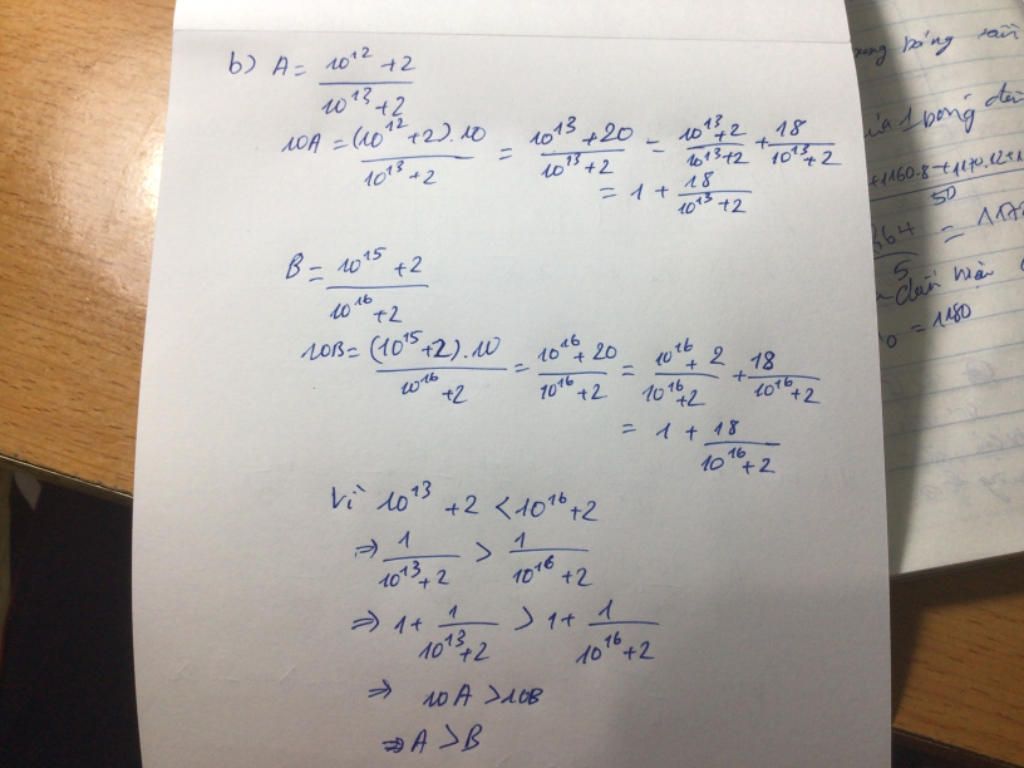 b) A = (10^12 + 2)/(10^13 + 2)
10A = ((10^12 + 2) . 10)/(10^13 + 2) = (10^13 + 20)/(10^13 + 2) = (10^13 + 2)/(10^13 + 2) + 18/(10^13 + 2)
= 1 + 18/(10^13 + 2)
B = (10^15 + 2)/(10^16 + 2)
10B = ((10^15 + 2) . 10)/(10^16 + 2) = (10^16 + 20)/(10^16 + 2) = (10^16 + 2)/(10^16 + 2) + 18/(10^16 + 2)
= 1 + 18/(10^16 + 2)
Vì 10^13 + 2 < 10^16 + 2
⇒ 1/(10^13 + 2) > 1/(10^16 + 2)
⇒ 1 + 1/(10^13 + 2) > 1 + 1/(10^16 + 2)
⇒ 10A > 10B
⇒ A > B
bóng
1 bóng
50
5
= 1180